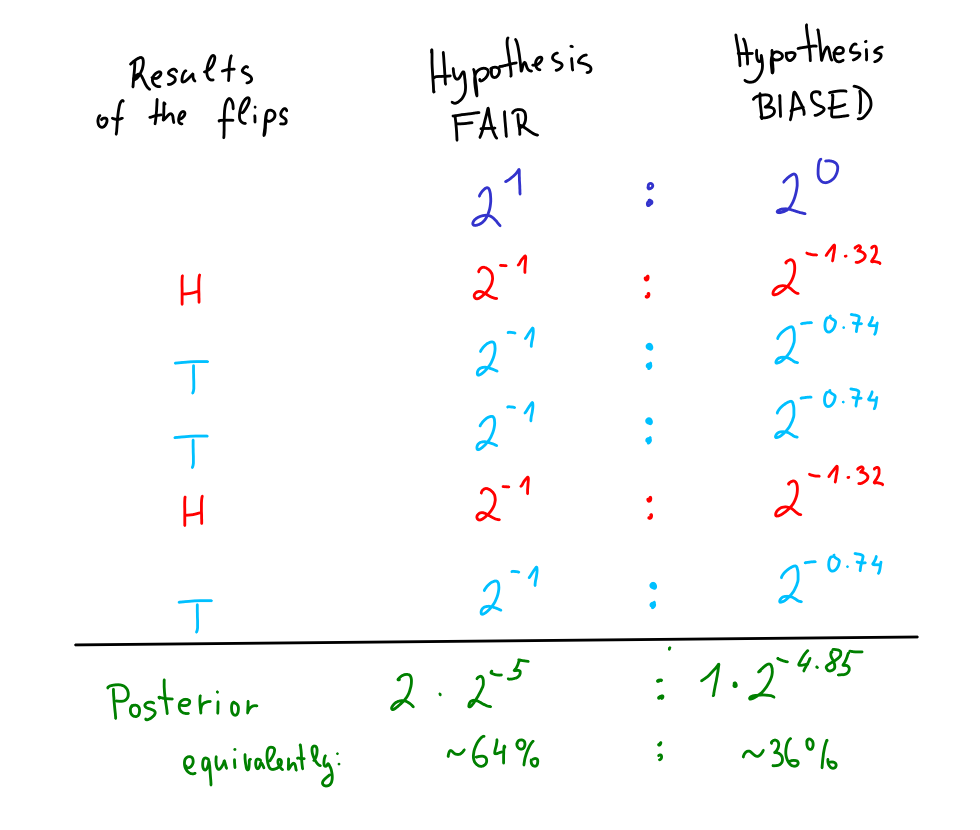 Results of the flips Hypothesis FAIR Hypothesis BIASED
2^1 : 2^0
H 2^-1 : 2^-1.32
T 2^-1 : 2^-0.74
T 2^-1 : 2^-0.74
H 2^-1 : 2^-1.32
T 2^-1 : 2^-0.74
Posterior 2 · 2^-5 : 1 · 2^-4.85
equivalently: ~64% : ~36%